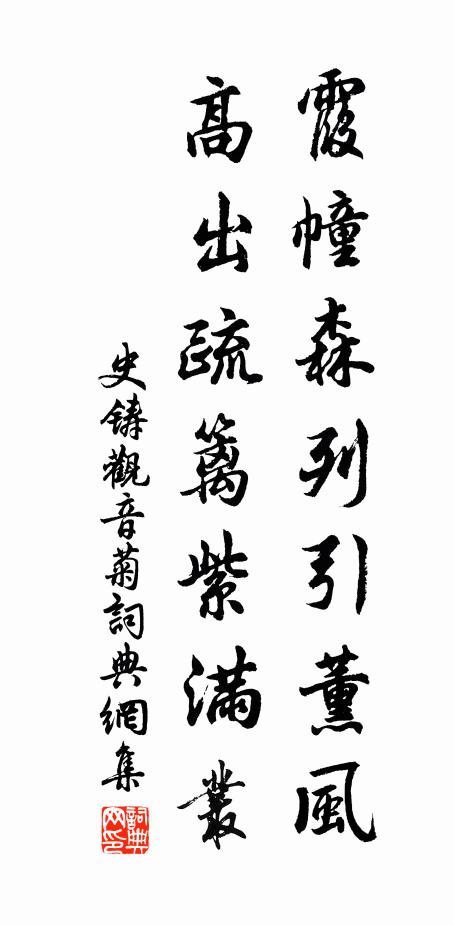 霞幢森列引薰風
高出疏籬紫滿叢
史鑄觀音菊詞典網集
詞典网印